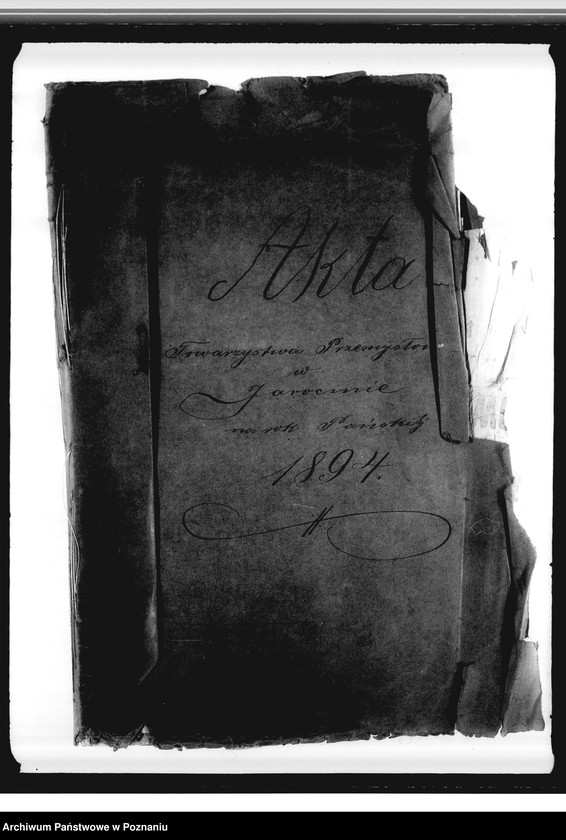 Akta
Towarzystwa Przemysłow
w
Jarocinie
na rok Pański
1894.
Archiwum Państwowe w Poznaniu